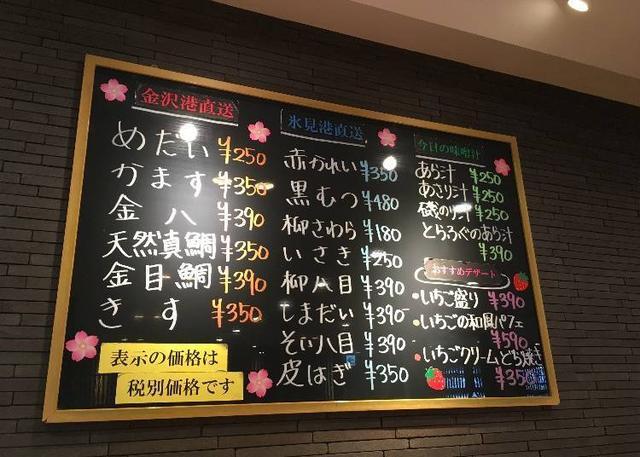 金沢港直送
めだい ¥250
かます ¥350
金八 ¥390
天然真鯛 ¥350
金目鯛 ¥390
きす ¥350
表示の価格は
税別価格です
氷見港直送
赤かれい ¥350
黒むつ ¥480
柳さわら ¥180
いさき ¥250
柳八目 ¥390
しまだい ¥390
そい八目 ¥390
皮はぎ ¥350
今日の味噌汁
あら汁 ¥250
あさり汁 ¥250
磯のり汁 ¥250
とらふぐのあら汁
¥390
おすすめデザート
・いちご盛り ¥390
・いちごの和風パフェ
¥590
・いちごクリームどら焼き
¥350